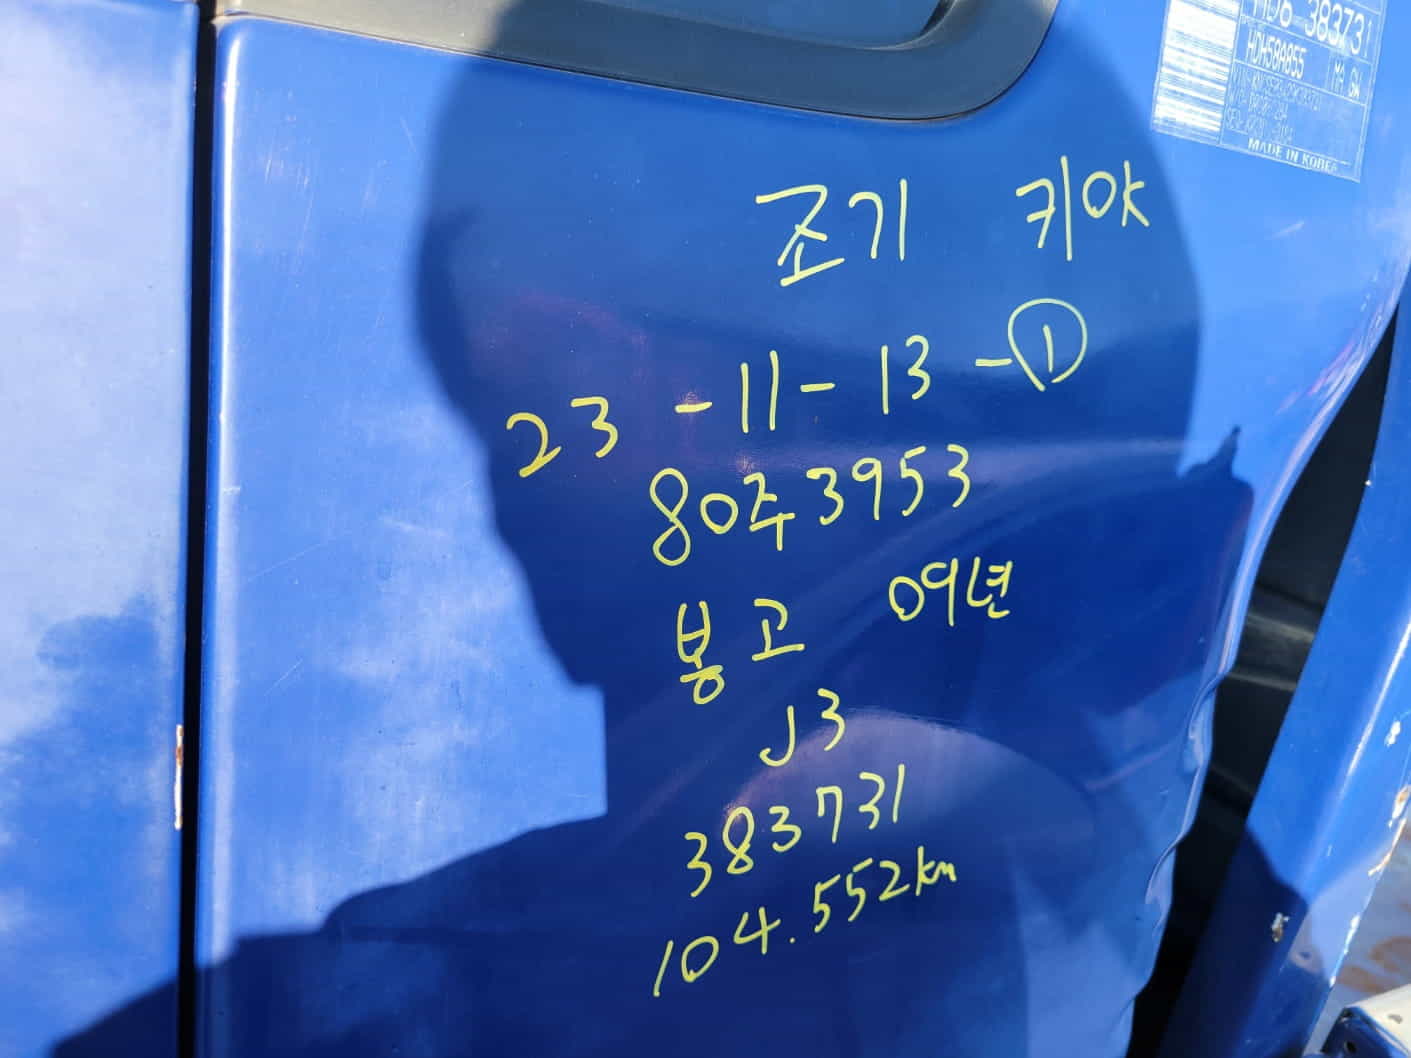 383731
HDH58A055
MA GW
MADE IN KOREA
조기 키아
23 -11- 13 -①
80주3953
봉고 09년
J3
383731
104.552km